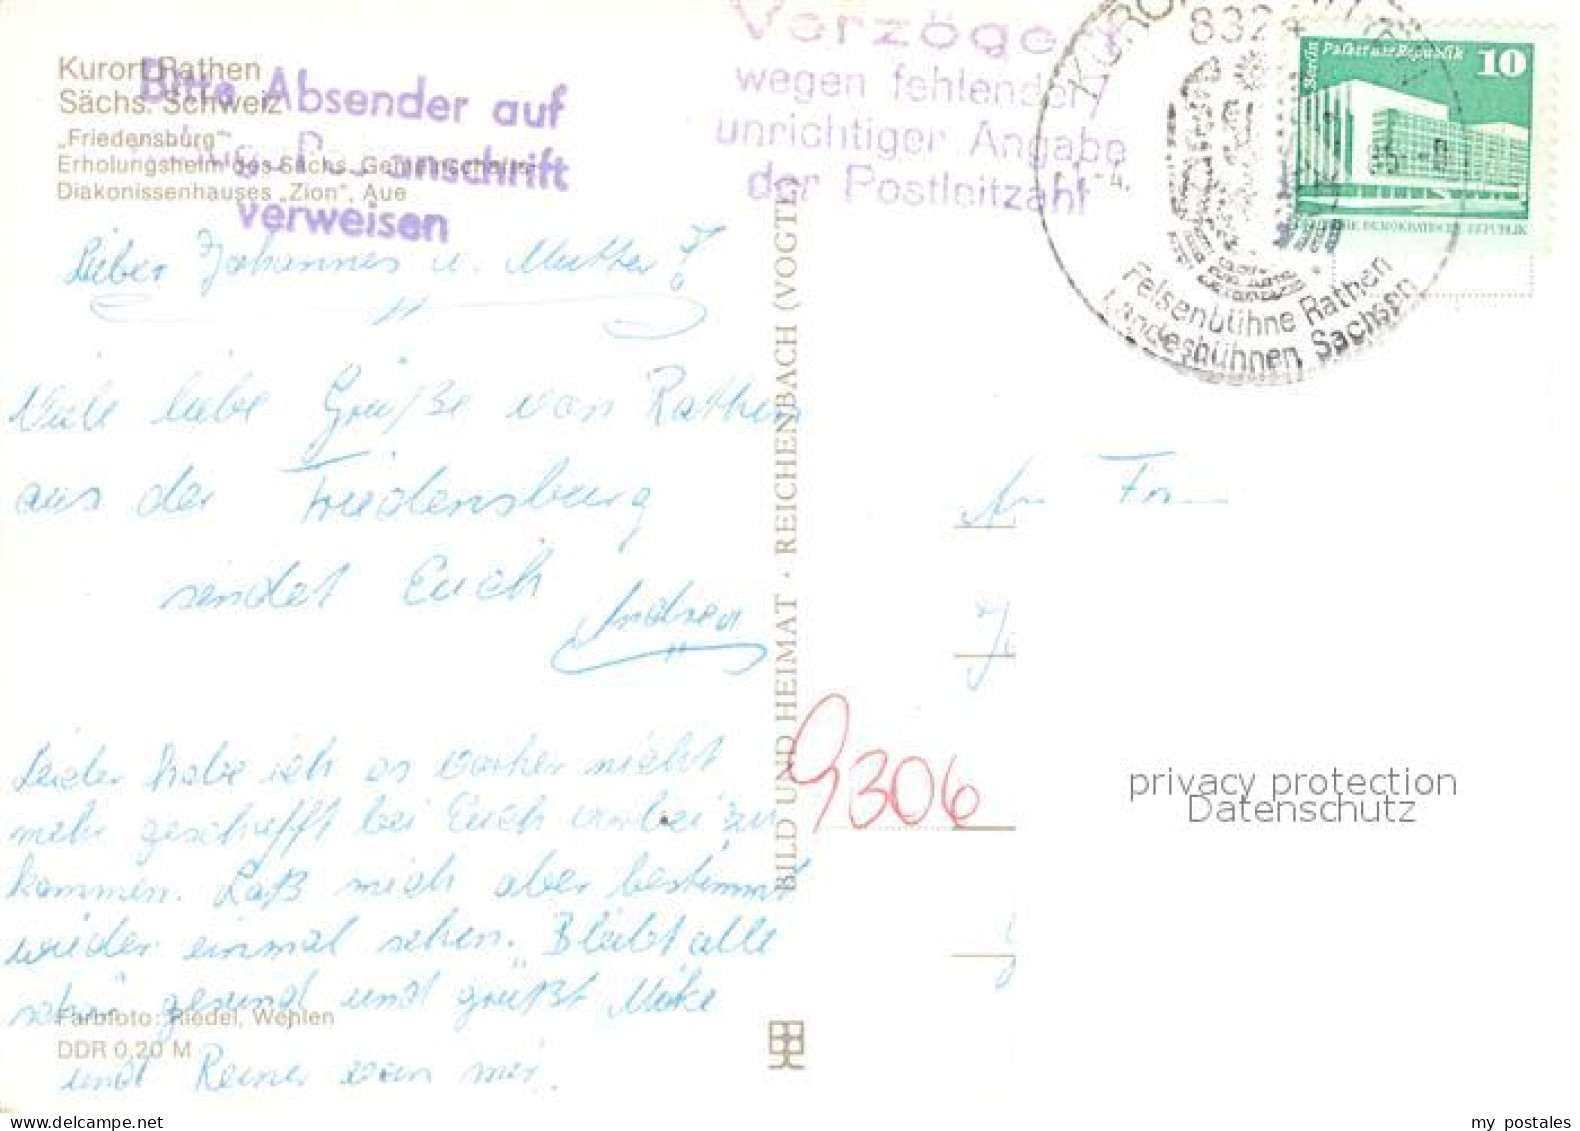 Kurort Rathen
Sächs. Schweiz
„Friedensburg"
Erholungsheim des Sächs. Gemeinschafts-
Diakonissenhauses „Zion", Aue
Bitte Absender auf
anschrift
verweisen
Verzögert
wegen fehlender/
unrichtiger Angabe
der Postleitzahl
KURORT
8324
Felsenbühne Rathen
Landesbühnen Sachsen
Berlin Palast der Republik 10
Lieber Johannes u. Mutter
Viele liebe Grüße von Rathen
aus der Friedensburg
sendet Euch
Andrea
Leider habe ich es vorher nicht
mehr geschafft bei Euch vorbei zu
kommen. Laß mich aber bestimmt
wieder einmal sehen. Bleibt alle
schön gesund und grüßt
und Reiner von mir.
Farbfoto: Riedel, Wehlen
DDR 0,20 M
BILD UND HEIMAT · REICHENBACH (VOGTL)
9306
privacy protection
Datenschutz
my postales